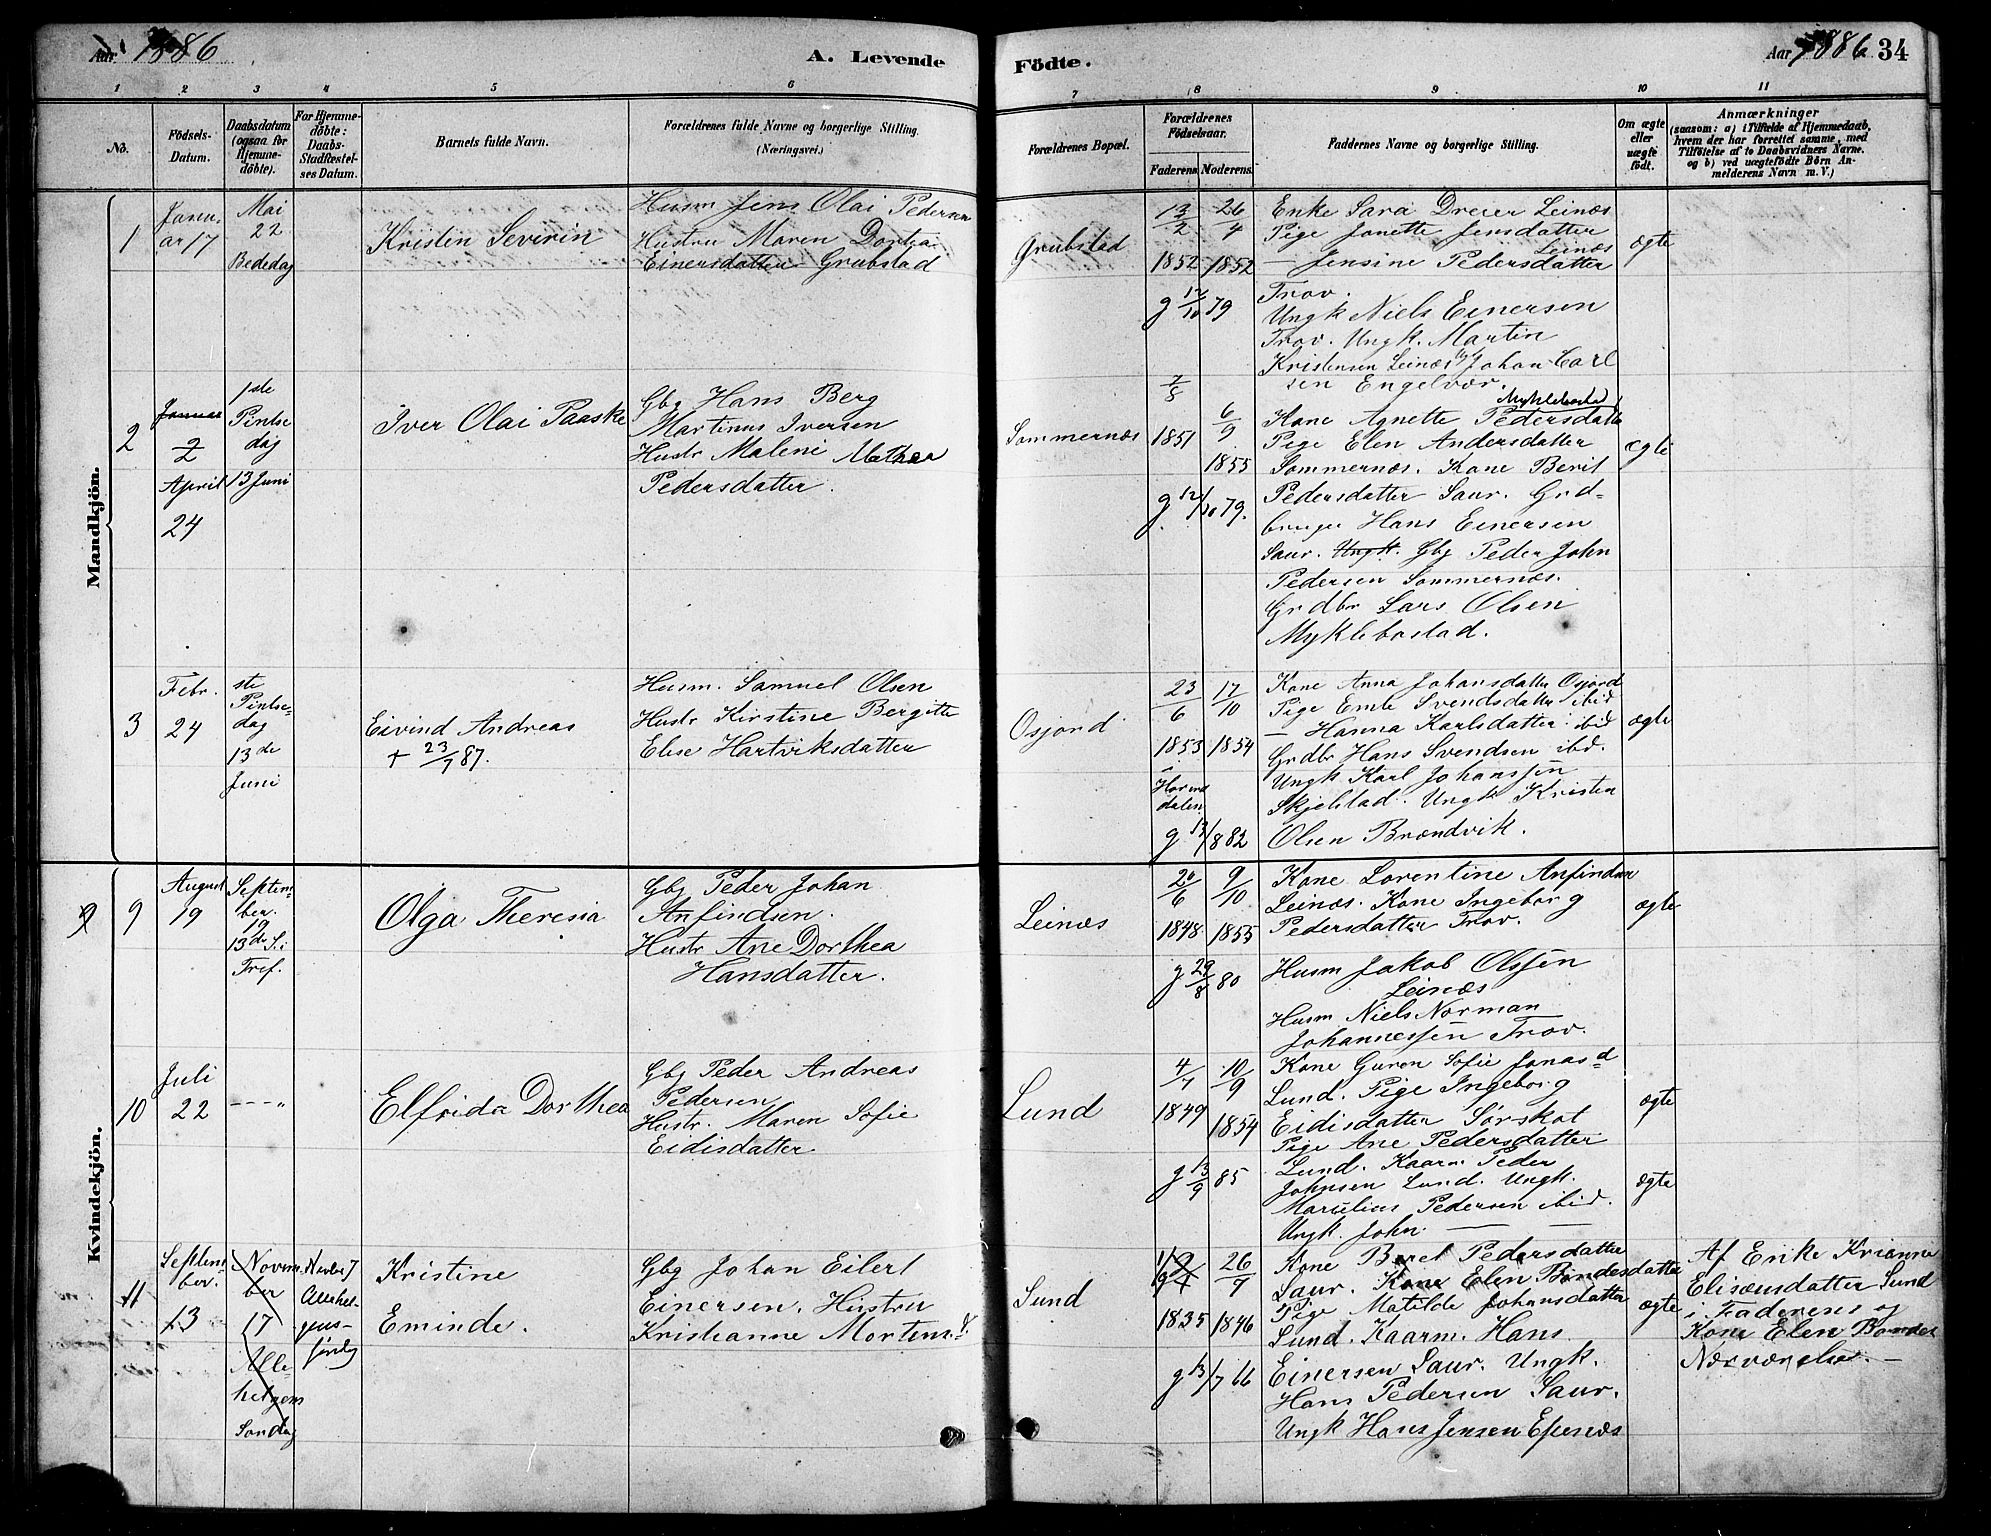 Aar 1886
A. Levende
Födte.
Aar 1886
34
1 2 3 4 5 6
7 8 9 10 11
No.
Födsels-
Datum.
Daabsdatum
(ogsaa for
Hjemme-
döbte).
For Hjemme-
döbte:
Daabs-
Stadfæstel-
ses Datum.
Barnets fulde Navn.
Forældrenes fulde Navne og borgerlige Stilling.
(Næringsvei.)
Forældrenes Bopæl.
Forældrenes
Födselsaar.
Faderens. Moderens.
Faddernes Navne og borgerlige Stilling.
Om ægte
eller
uægte
födt.
Anmærkninger
(saasom: a) i Tilfælde af Hjemmedaab,
hvem der har forrettet samme, med
Tilföielse af to Daabsvidners Navne.
og b) ved uægtefödte Börn An-
melderens Navn m. V.)
Mandkjön.
1
Janu-
ar 17
Mai
22
Bededag
Kristen Severin
Husm Jens Olai Pedersen
Hustru Maren Dortea
Einersdatter Grubstad
Grubstad
13/2 26/4
1852 1852
g 12/10 79
Enke Sara Dreier Leinæs
Pige Janette Jensdatter
Leinæs
— Jensine Pedersdatter
Trov.
Ungk Niels Einersen
Trov. Ungk. Martin
Kristensen Leinæs Ungk Johan Carl
sen Engelvær.
ægte
2
Januar
2
April
24
1ste
Pintse
dag
13 Juni
Iver Olai Paaske
Gbg Hans Berg
Martinus Iversen
Hustr Maleni Mathea
Pedersdatter.
Sommernæs
7/8
1851
6/9
1855
g 12/10 79.
Myklebostad
Kone Agnette Pedersdatter
Pige Elen Andersdatter
Sommernæs. Kone Berit
Pedersdatter Saur. Grd-
bruger Hans Einersen
Saur. Ungk. Gbg Peder John
Pedersen Sommernæs.
Grdbr Lars Olsen
Myklebostad.
ægte
3
Febr.
24
ste
Pintse-
dag
13de
Juni
Eivind Andreas
+ 23/7 87.
Husm. Samuel Olsen
Hustr Kirstine Bergitte
Elise Hartviksdatter
Osjord
23/6 17/10
1853 1854
g 13/8 82
Kone Anna Johansdatter Osjord
Pige Emb Svendsdatter ibid
— Hanna Karlsdatter ibid
Grdbr Hans Svendsen ibd.
Ungk Karl Johanssen
Skjelstad. Ungk Kristen
Olsen Brændvik.
ægte
Kvindekjön.
9 9
August
19
Septem-
ber.
19
13de S. i
Tref.
Olga Theresia
Gbg Peder Johan
Anfindsen.
Hustr Ane Dorthea
Hansdatter.
Leinæs
20/6 9/10
1848 1855
g 29/8 80
Kone Lorentine Anfindsen
Leinæs. Kone Ingeborg
Pedersdatter Trov.
Husm Jakob Olssen
Leinæs
Husm Niels Norman
Johannessen Trov.
ægte
10
Juli
22
- - - "
Elfrida Dorthea
Gbg Peder Andreas
Pedersen
Hustr. Maren Sofie
Eidisdatter
Lund
4/7 10/9
1849 1854
g 13/9 85
Kone Guren Sofie Jonasd
Lund. Pige Ingeborg
Eidisdatter Sørskot
Pige Ane Pedersdatter
Lund. Kaarm Peder
Johnsen Lund. Ungk.
Marelius Pedersen ibid.
Ungk John. — —
ægte
ægte
11
Septem-
ber.
13
Novem-
ber
17
Alle
helgens
Søndag
Novbr 7
Allehel-
gens-
søndag
Kristine
Eminde.
Gbg Johan Eilert
Einersen. Hustru
Kristianne Mortensd.
Lund
26/7
1835 1846
g 13/7 66
Kone Beret Pedersdatter
Saur. Kone Elen Bondesdatter
Pige Matilde Johansdatter
Lund. Kaarm. Hans
Einersen Saur. Ungk.
Hans Pedersen Saur.
Ungk Hans Jensen Epenæs
ægte
Af Enke Krianna
Elisæusdatter Lund
i Faderens og
Kone Elen Bondes
Nærværelse. —